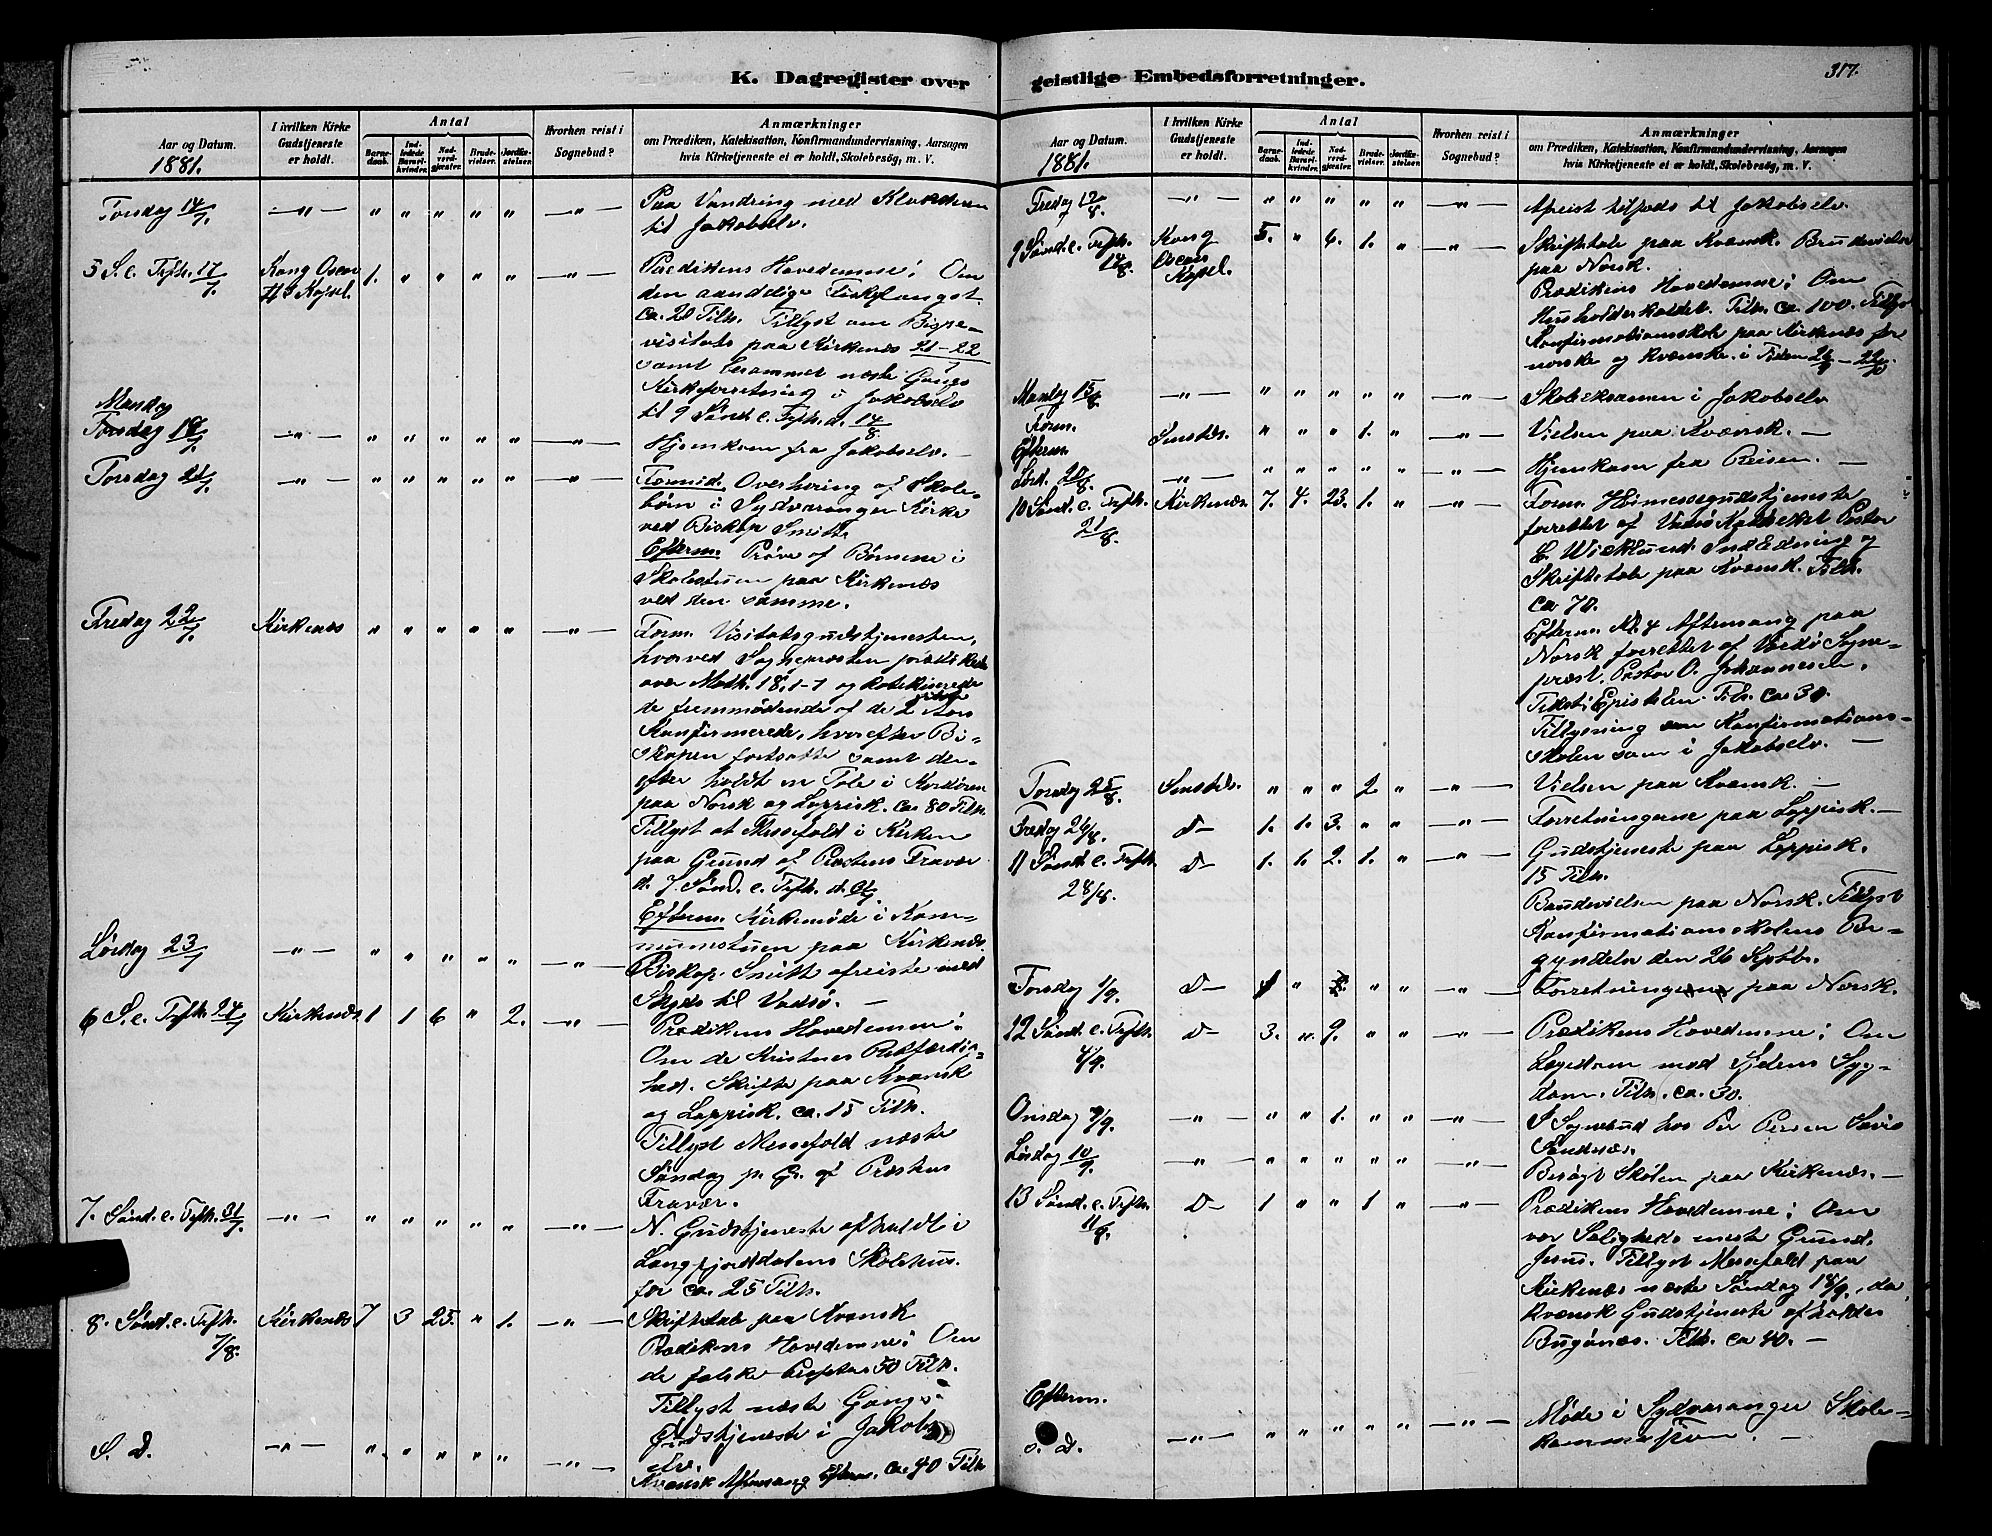 K. Dagregister over
Aar og Datum.
1881.
I hvilken Kirke Gudstjeneste er holdt.
Antal
Barne-daab.
Ind-ledede Barsel-kvinder.
Nad-verd-gjæster.
Brude-vielser.
Jordfæ-stelser.
Hvorhen reist i Sognebud?
Anmærkninger
om Prædiken, Katekisation, Konfirmandundervisning, Aarsagen
hvis Kirketjeneste ei er holdt, Skolebesøg, m. V.
Torsdag 14/7. —„— „ „ „ „ „ —„— Paa Vandring med
til Jakobselv.
5 S. e. Trfh. 17/7. Kong Oscar 1. „ „ „ „ —„— Prædikens Hovedemne: Om
II's Kapel. den aandelige Fiskefangst.
ca. 20 Tilh. Tillyst om Bispe-
visitats paa Kirkenæs 21-22/7
samt berammet næste Gangs
Mandag Kirkeforretning i Jakobselv
til 9 Sønd. e. Trfh. d. 14/8
Torsdag 18/7. —„— „ „ „ „ „ —„— Hjemkom fra Jakobselv. —
Torsdag 21/7. „ „ „ „ „ —„— Formid. Overhøring af Skole-
børn i Sydvaranger Kirke
ved Biskop Smitt.
Efterm. Prøve af Børnene i
Skolestuen paa Kirkenæs
ved den samme.
Fredag 22/7. Kirkenæs „ „ „ „ „ —„— Form. Visitatsgudstjenesten,
hvorved Sognepræsten prædikede
over Math. 18, 1-7 og katekiserede
de fremmødende af de 2 sidste Aars
Konfirmerede, hvorefter Bi-
skopen fortsatte samt der-
efter holdt en Tale i Kordøren
paa Norsk og Lappisk. ca. 80 Tilh.
Tillyst at Messefald i Kirken
paa Grund af Præstens Fravær
d. 7. Sønd. e. Trfh. d. 31/7.
Efterm. Kirkemøde i Kom-
munestuen paa Kirkenæs.
Lørdag 23/7 —„— „ „ „ „ „ —„— Biskop Smitt afreiste med
Skyds til Vadsø. —
6 S. e. Trfh. 24/7 Kirkenæs 1 1 6 „ 2. —„— Prædikens Hovedemne:
Om de Kristnes Retfærdig-
hed. Skrifte paa Kvænsk
og Lappisk. ca. 15 Tilh.
Tillyst Messefald næste
Søndag p. Gr. af Præstens
Fravær.
7. Sønd. e. Trfh. 31/7. —„— „ „ „ „ „ —„— N. Gudstjeneste afholdt i
Langfjorddalens Skolehus.
for ca. 25 Tilh.
8. Sønd. e. Trfh. Kirkenæs 7 3 25. „ 1. —„— Skriftetale paa Kvænsk
7/8. Prædikens Hovedemne: Om
de falske Profeter 50 Tilh.
Tillyst næste Gangs
Gudstjeneste i Jakobs-
S. D. —„— „ „ „ „ „ —„— elv.
Kvænsk Aftensang Efterm. ca. 40 Tilh
geistlige Embedsforretninger.
317.
Aar og Datum.
1881.
I hvilken Kirke Gudstjeneste er holdt.
Antal
Barne-daab.
Ind-ledede Barsel-kvinder.
Nad-verd-gjæster.
Brude-vielser.
Jordfæ-stelser.
Hvorhen reist i Sognebud?
Anmærkninger
om Prædiken, Katekisation, Konfirmandundervisning, Aarsagen
hvis Kirketjeneste ei er holdt, Skolebesøg, m. V.
Fredag 12/8. —„— „ „ „ „ „ —„— Afreist tilfods til Jakobselv.
9 Sønd. e. Trfh. Kong 5. „ 6. 1. „ —„— Skriftetale paa Kvænsk. Brudevielse
14/8. Oscars paa Norsk.
Kapel. Prædikens Hovedemne: Om
Husholderskabet. Tilh. ca. 100. Tillyst
Konfirmationsskole paa Kirkenæs for
norske og kvænske i Tiden
Mandag 15/8. —„— „ „ „ „ „ —„— Skoleeksamen i Jakobselv
Form.
Efterm. „ „ „ 1. „ —„— Vielsen paa Kvænsk. —
Lørd. 20/8. —„— „ „ „ „ „ —„— Hjemkom fra Reisen. —
10 Sønd. e. Trfh. Kirkenæs 7. 4. 23. 1. „ —„— Form. Høimessegudstjeneste
21/8. forrettet af Vadsø Pastor
E. Wicklund. Indledning og
Skriftetale paa Kvænsk. Tilh.
ca 70.
Efterm. Kl. 4 Aftensang paa
Norsk forrettet af Vardø Sogne-
præst, Pastor O. Johannesen.
Tekst: Epistelen. Tilh. ca. 30.
Tillysning om Konfirmations-
skolen som i Jakobselv. —
Torsdag 25/8. „ „ „ 2 „ —„— Vielsen paa Kvænsk. —
Fredag 26/8. D— 1. 1. 3. „ „ —„— Forretningerne paa Lappisk. —
11 Sønd. e. Trfh. D— 1. 1. 2. 1. „ —„— Gudstjeneste paa Lappisk.
28/8. 15 Tilh.
Brudevielsen paa Norsk. Tillyst
Konfirmationsskolens Be-
gyndelse den 26 Septbr.
Torsdag 1/9. D— 1 „ „ „ —„— Forretningen paa Norsk.
12 Sønd. e. Trfh. D— 3. „ 9. „ „ —„— Prædikens Hovedemne: Om
4/9. Lægedom mod Sjelens Syg-
dom. Tilh. ca. 30.
Onsdag 7/9. —„— „ „ 1. „ „ —„— I Sognebud hos Per Persen
Sandnæs.
Lørdag 10/9. —„— „ „ „ „ „ —„— Besøgt Skolen paa Kirkenæs. —
13 Sønd. e. Trfh. D— 1 „ „ 1 „ —„— Prædikens Hovedemne: Om
11/9. vor Saligheds eneste Grund,
Jesus. Tillyst Messefald paa
Kirkenæs næste Søndag 18/9., da
kvænsk Gudstjeneste afholdes
Bugønæs. Tilh. ca 40. —
Efterm.
S. D. —„— „ „ „ „ „ —„— Møde i Sydvaranger Skole-
kommission. —